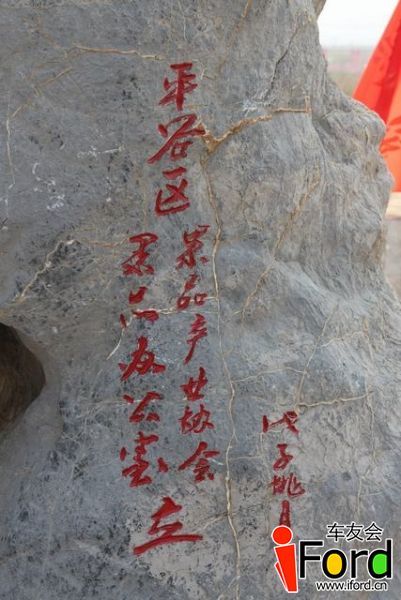 平谷区
果品产业协会
果品办公室
立
戊子桃月
车友会
iFord
www.iford.cn